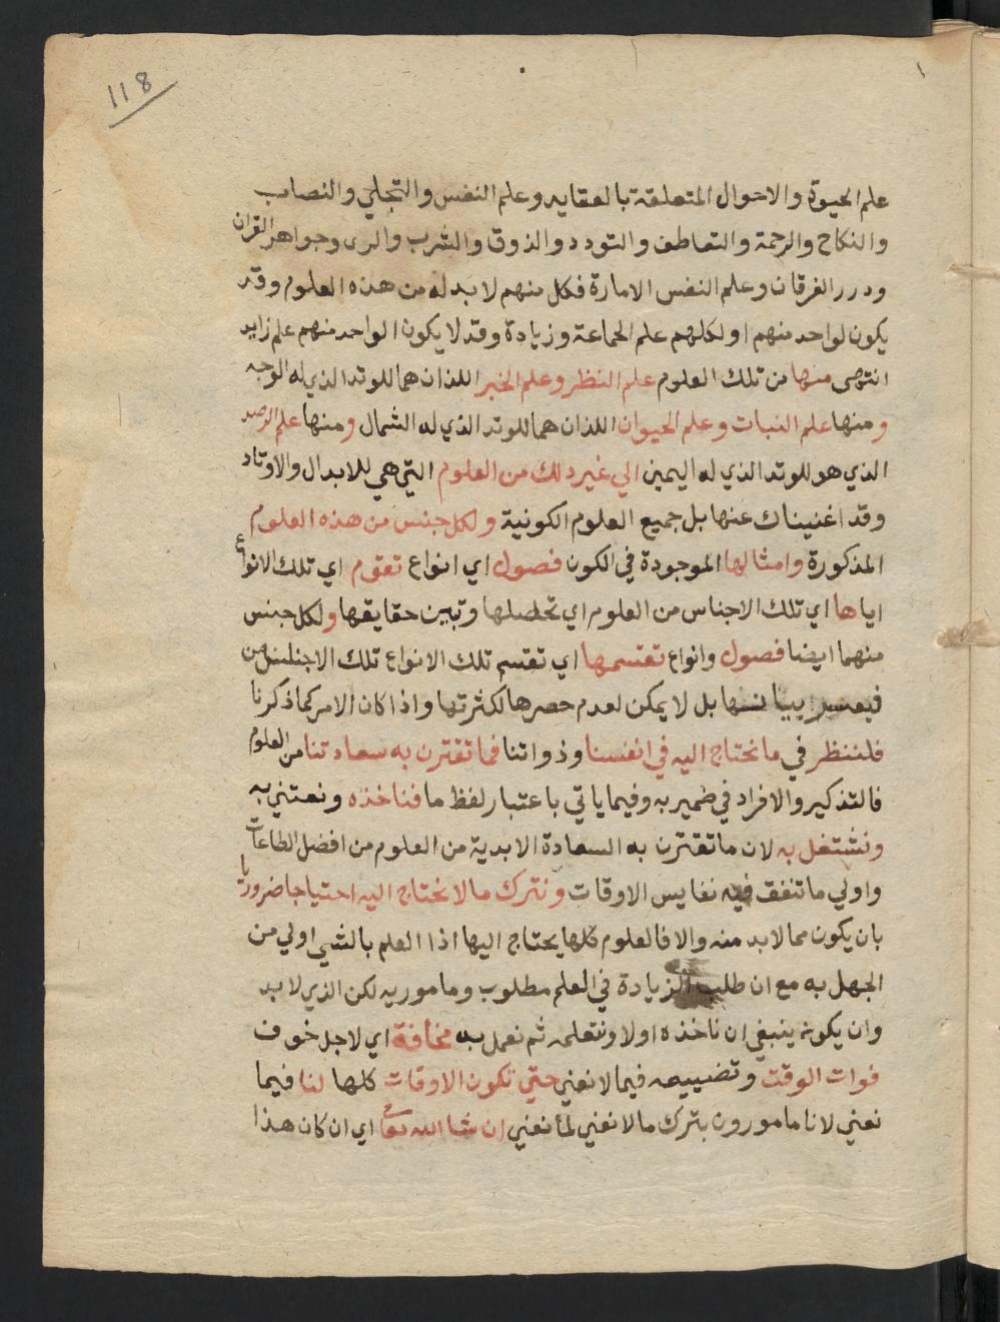 118
علم الحيوة والاحوال المتعلقة بالعقايد وعلم النفس والتجلي والنصاب
والنكاح والرحمة والتعاطف والتودد والذوق والشرب والرى وجواهر القران
ودرر الفرقان وعلم النفس الامارة فكل منهم لابد له من هذه العلوم وقد
يكون لواحد منهم او لكلهم علم الجماعة وزيادة وقد لا يكون الواحد منهم علم زايد
انتهى منها من تلك العلوم علم النظر وعلم الخبر اللذان هما للوتد الذي له الوجه
ومنها علم النبات وعلم الحيوان اللذان هما للوتد الذي له الشمال ومنها علم الرصد
الذي هو للوتد الذي له اليمين الي غير ذلك من العلوم التي هي للابدال والاوتاد
وقد اغنيناك عنها بل جميع العلوم الكونية ولكل جنس من هذه العلوم
المذكورة وامثالها الموجودة في الكون فصول اي انواع تقوم اي تلك الانواع
اياها اي تلك الاجناس من العلوم اي تحصلها وتبين حقايقها ولكل جنس
منهما ايضا فصول وانواع تقتسمها اي تقتسم تلك الانواع تلك الاجناس
فيعسر بيانها بل لا يمكن لعدم حصرها لكثرتها واذا كان الامر كما ذكرنا
فلننظر في ما نحتاج اليه في انفسنا وذواتنا فما تقترن به سعادتنا من العلوم
فالتذكير والافراد في ضمير به وفيما ياتي باعتبار لفظ ما فناخذه ونعتني به
ونشتغل به لان ما تقترن به السعادة الابدية من العلوم من افضل الطاعات
واولي ما تنفق فيه نفايس الاوقات ونترك ما لا نحتاج اليه احتياجا ضروريا
بان يكون مما لابد منه والا فالعلوم كلها يحتاج اليها اذا العلم بالشي اولي من
الجهل به مع ان طلب الزيادة في العلم مطلوب ومامور به لكن الذي لا بد
وان يكون ينبغي ان ناخذه اولا ونتعلمه ثم نعمل به مخافة اي لاجل خوف
فوات الوقت وتضييعه فيما لا نعني حتي تكون الاوقات كلها لنا فيما
نعني لانا مامورون بترك ما لا نعني لما نعني ان شا الله تعا اي ان كان هذا